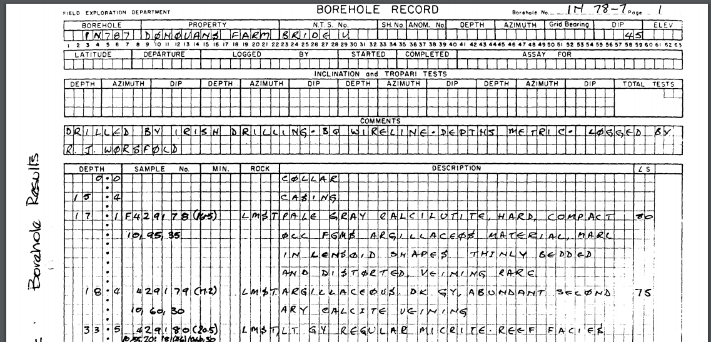 FIELD EXPLORATION DEPARTMENT BOREHOLE RECORD Borehole No. IN 78-7 Page 1
BOREHOLE PROPERTY N.T.S. No. SH.No ANOM. No. DEPTH AZIMUTH Grid Bearing DIP ELEV
IN787 DØNØVANS FARM BRIDE V 45
1 2 3 4 5 6 7 8 9 10 11 12 13 14 15 16 17 18 19 20 21 22 23 24 25 26 27 28 29 30 31 32 33 34 35 36 37 38 39 40 41 42 43 44 45 46 47 48 49 50 51 52 53 54 55 56 57 58 59 60 61 62 63
LATITUDE DEPARTURE LOGGED BY STARTED COMPLETED ASSAY FOR
INCLINATION and TROPARI TESTS
DEPTH AZIMUTH DIP DEPTH AZIMUTH DIP DEPTH AZIMUTH DIP DEPTH AZIMUTH DIP TOTAL TESTS
COMMENTS
DRILLED BY IRISH DRILLING-BQ WIRELINE-DEPTHS METRIC- LØGGED BY
R.J. WØRSFØLD
DEPTH SAMPLE No. MIN. ROCK DESCRIPTION
0.0 CØLLAR
15.4 CASING
17.1 F42917 8 LMST PALE GRAY CALCILUTITE, HARD, COMPACT
10, 95, 35 ARGILLACEØS MATERIAL, MARL
IN LENSØID SHAPES THINLY BEDDED
AND DISTØRTED, VEINING RARE
18.4 42917 9 LMST ARGILLACEØUS, DK GY, ABUNDANT SECOND 75
10, 60, 30 ARY CALCITE VEINING
33.5 42918 0 (205) LMST, LT GY REGULAR MICRITE-REEF FACIES
Borehole Results